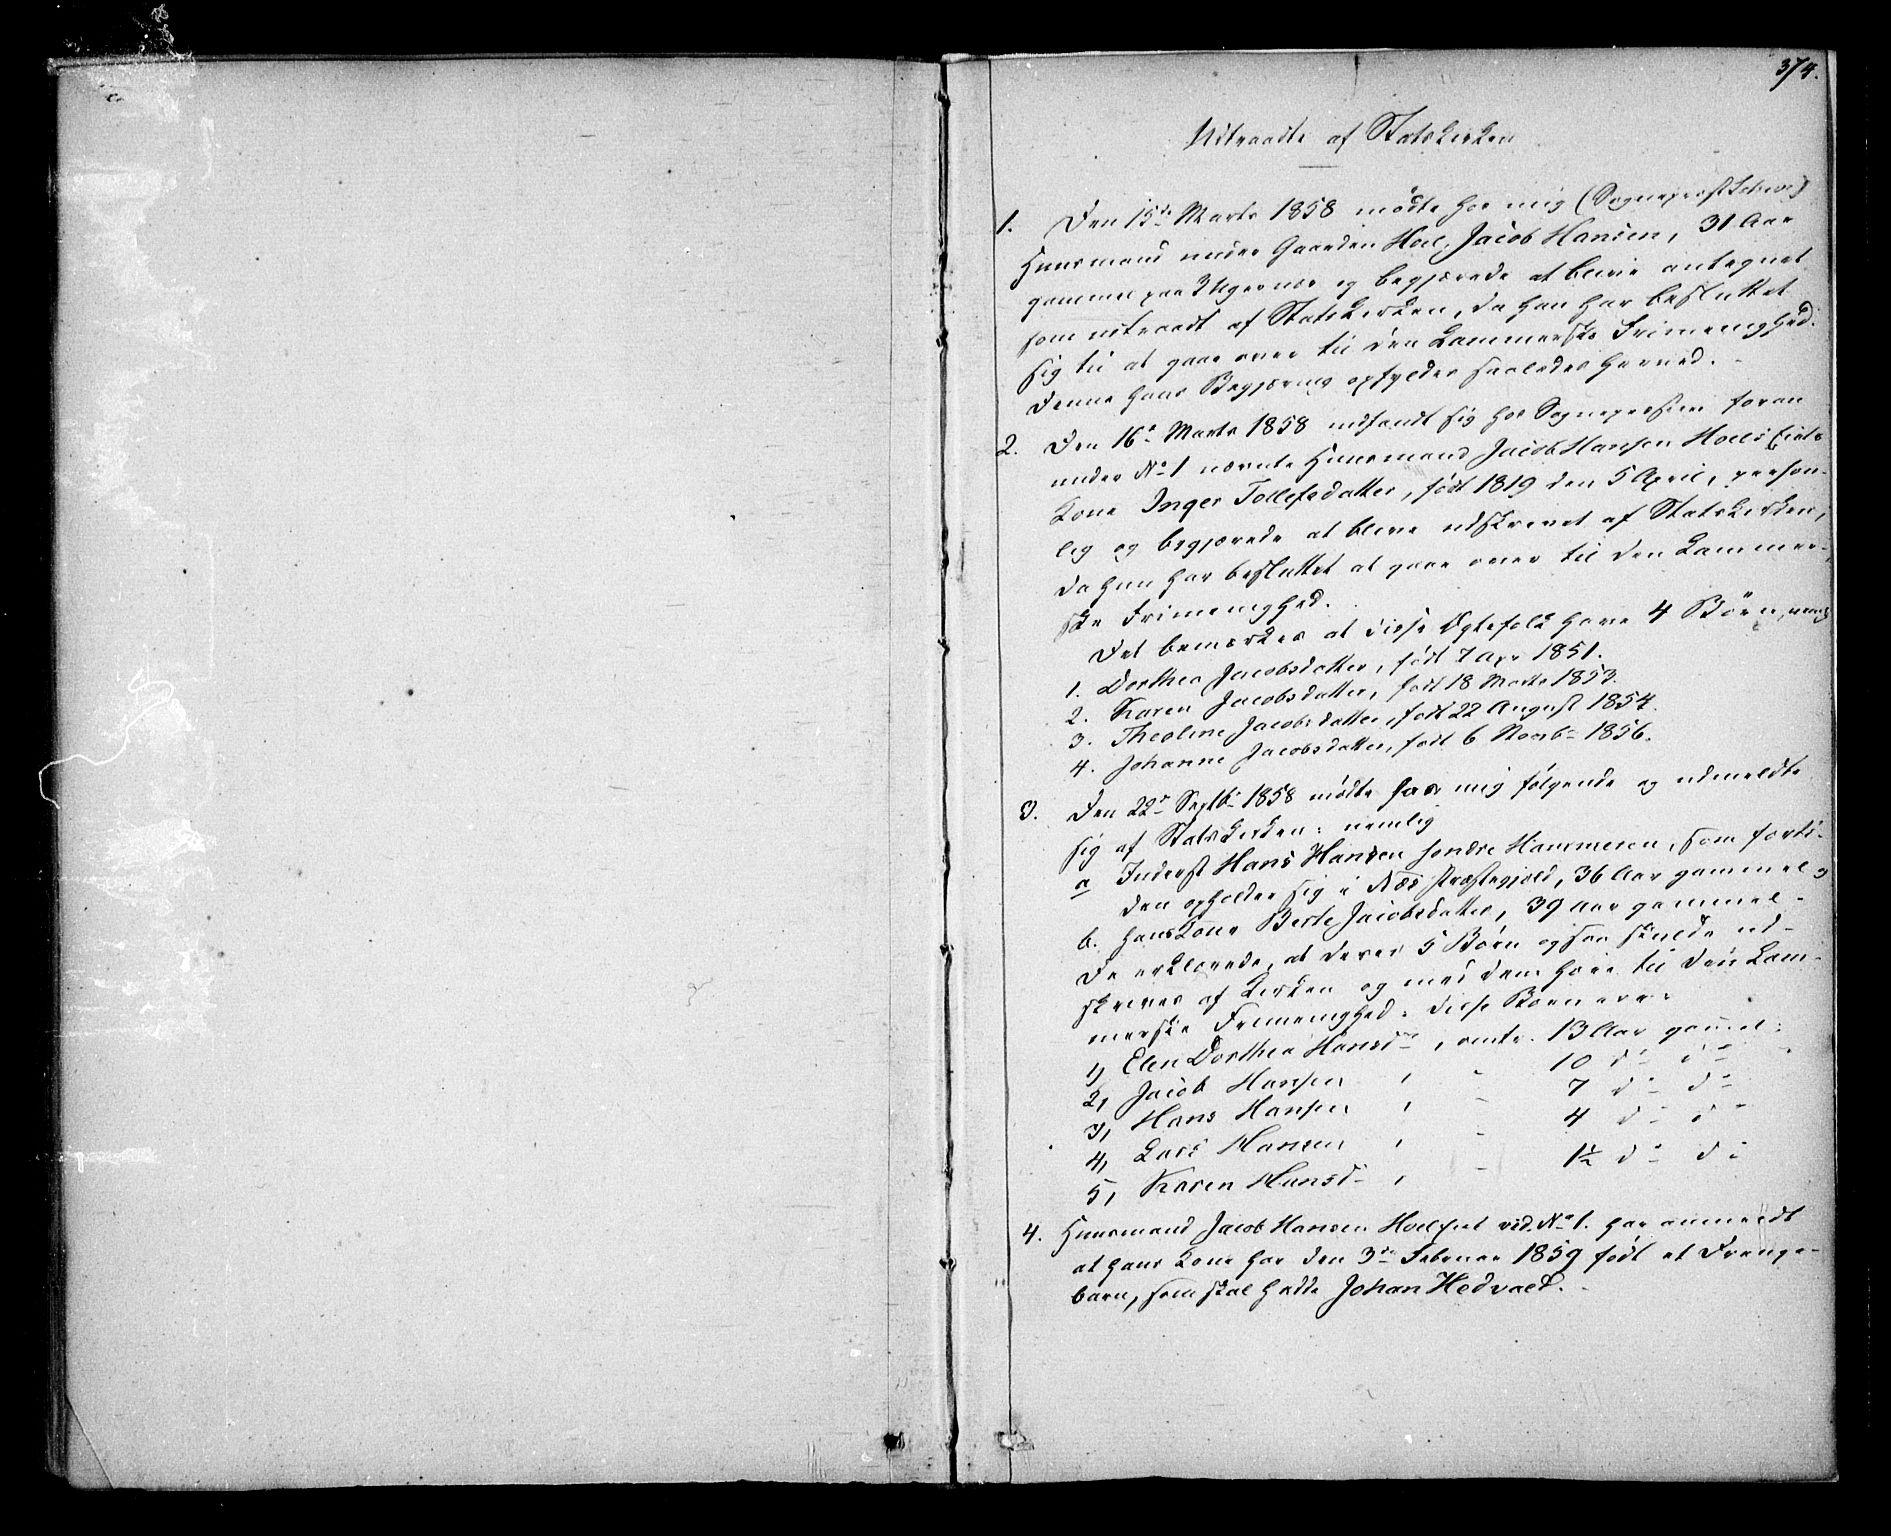 374.
Udtraadte af Statskirken
1. Den 15de Marts 1858 mødte hos mig (Sognepræst
Huusmand under Gaarden Hoel, Jacob Hansen, 31 Aar
gammel paa og begjærede at blive antegnet
som udtraadt af Statskirken, da han har besluttet
sig til at gaae over til den Lammerske Frimenighed.
Denne hans Begjæring opfyldes saaledes herved.
2. Den 16de Marts 1858 indfandt sig hos Sognepræsten foran
under No 1 nævnte Huusmand Jacob Hansen Hoels Eiets
Kone Inger Tollefsdatter, født 1819 den 5 April, person-
lig og begjærede at blive udskrevet af Statskirken,
da hun har besluttet at gaae over til den Lammer-
ske Frimenighed.
Det bemærkes at disse Ægtefolk have 4 Børn, neml
1. Dorthea Jacobsdatter, født 7 Apr 1851.
2. Karen Jacobsdatter, født 18 Marts 1853.
3. Theoline Jacobsdatter, født 22 August 1854.
4. Johanne Jacobsdatter, født 6 Novbr 1856.
3. Den 22de Septbr 1858 mødte for mig følgende og udmeldte
sig af Statskirken: nemlig
a Inderst Hans Hansen søndre Hammeren, som forti-
den opholder sig i Næs Præstegjeld, 36 Aar gammel og
b. hans Kone Berte Jacobsdatter, 39 aar gammel.
De erklærede, at deres 5 Børn ogsaa skulde ud-
skrives af Kirken og med dem høre til den Lam-
merske Frimenighed: disse Børn ere:
1) Elen Dorthea Hansdr, omtr. 13 Aar gammel:
2, Jacob Hansen, - 10 do do
3, Hans Hansen, - 7 do do
4, Lars Hansen, - 4 do do
5, Karen Hansd, - 1½ do do
4. Huusmand Jacob Hansen Hoelseiet vid. No 1. har anmeldt
at hans Kone har den 3de Februar 1859 født et Drenge-
barn, som skal hedde Johan Hedvald.